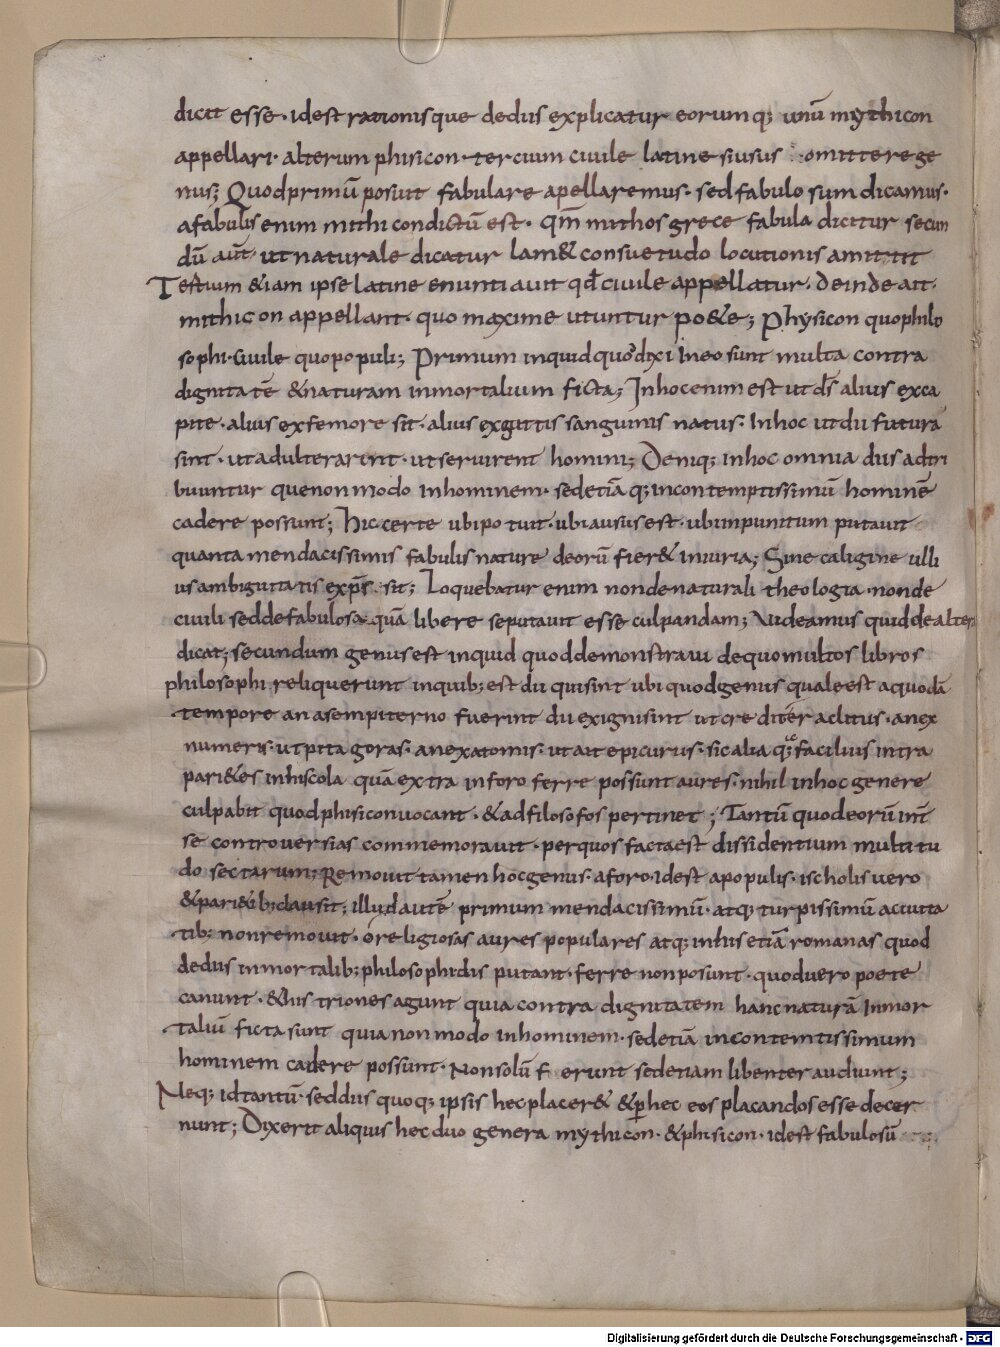 dicit esse · idest rationis que de diis explicatur eorumq; unū mythicon
appellari · alterum phisicon · tercium civile latine si usus omittere ge
nus; Quod primū posuit fabulare apellaremus · sed fabulosum dicamus ·
a fabulis enim mithicon dictū est · qm̄ mithos grece fabula dicitur secun
dū aut̄ ut naturale dicatur Iam & consuetudo locutionis amittit
Testium &iam ipse latine enuntiavit qđ civile appellatur · deinde ait ·
mithicon appellant · quo maxime utuntur poe&e; Physicon quo philo
sophi · Civile quo populi; Primum inquid quod dixi In eo sunt multa contra
dignitatē & naturam inmortalium ficta; In hoc enim est ut ds̄ alius exca
pite · alius ex femore sit · alius ex guttis sanguinis natus · In hoc ut dii futura
sint · ut adulterarint · ut servirent homini; Deniq; in hoc omnia diis adtri
buuntur que non modo in hominem · sed etiā q; in contemptissimū hominē
cadere possunt; hic certe ubi potuit · ubi ausus est · ubi inpunitum putavit
quanta mendacissimis fabulis nature deorū fier& iniuria; Sine caligine ulli
us ambiguitatis exp̄s sit; Loquebatur enim non de naturali theologia · non de
civili sed de fabulosa quā libere se putavit esse culpandam; Videamus quid de alter
dicat; secundum genus est inquid quod demonstravi de quo multos libros
philosophi reliquerunt in quib; est dii qui sint ubi quod genus quale est a quodā
tempore an a sempiterno fuerint dii ex igni sint ut credit eraclitus · an ex
numeris · ut pitagoras · an ex atomis · ut ait epicurus · sic alia q; facilius intra
pari&es in hiscola quā extra in foro ferre possunt aures · nihil in hoc genere
culpabit quod phisicon vocant · & ad filosofos pertinet; Tantū quod eorū int̄
se controversias commemoravit · per quos facta est dissidentium multitu
do sectarum; Removit tamen hoc genus · a foro · idest a populis · i scholis vero
& pari&ib; clausit; illud autē primum mendacissimū · atq; turpissimū a civita
tib; non removit · o religiosas aures populares atq; in his etiā romanas quod
de diis inmortalib; philosophi dis putant · ferre non posunt · quod vero poete
canunt · & histriones agunt quia contra dignitatem hanc naturā Inmor
taliū ficta sunt quia non modo in hominem · sed etiā in contemtissimum
hominem cadere possunt · Non solū f erunt sed etiam libenter audiunt;
Neq; id tantū · sed diis quoq; ipsis hec placer& & p hec eos placandos esse decer
nunt; Dixerit aliquis hec duo genera mythicon · & phisicon · idest fabulosū
Digitalisierung gefördert durch die Deutsche Forschungsgemeinschaft - DFG